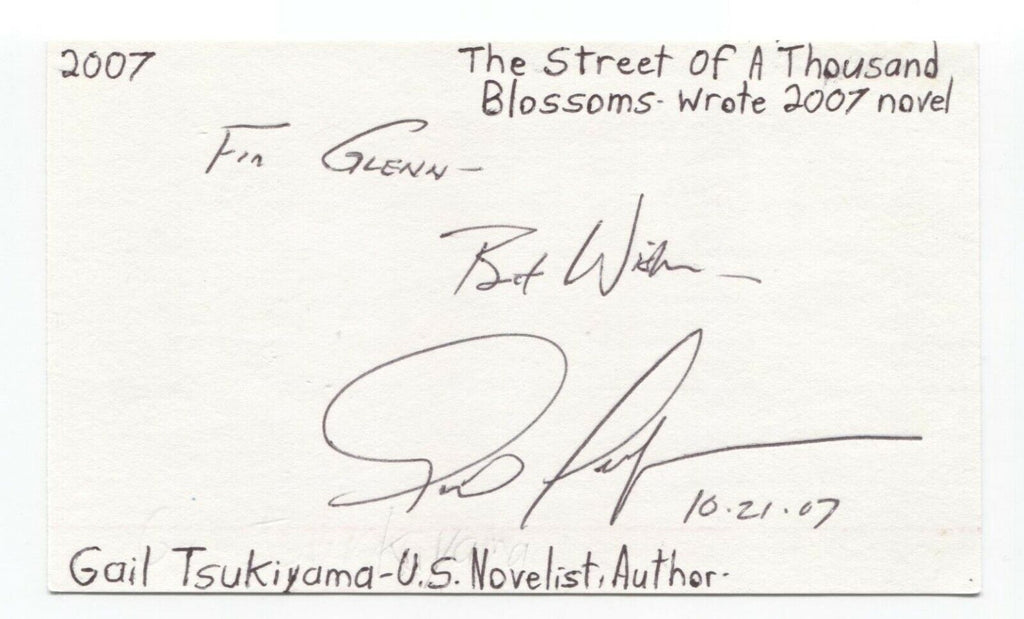 2007
The Street Of A Thousand
Blossoms- Wrote 2007 novel
For Glenn-
Best Wishes -
10.21.07
Gail Tsukiyama-U.S. Novelist, Author.